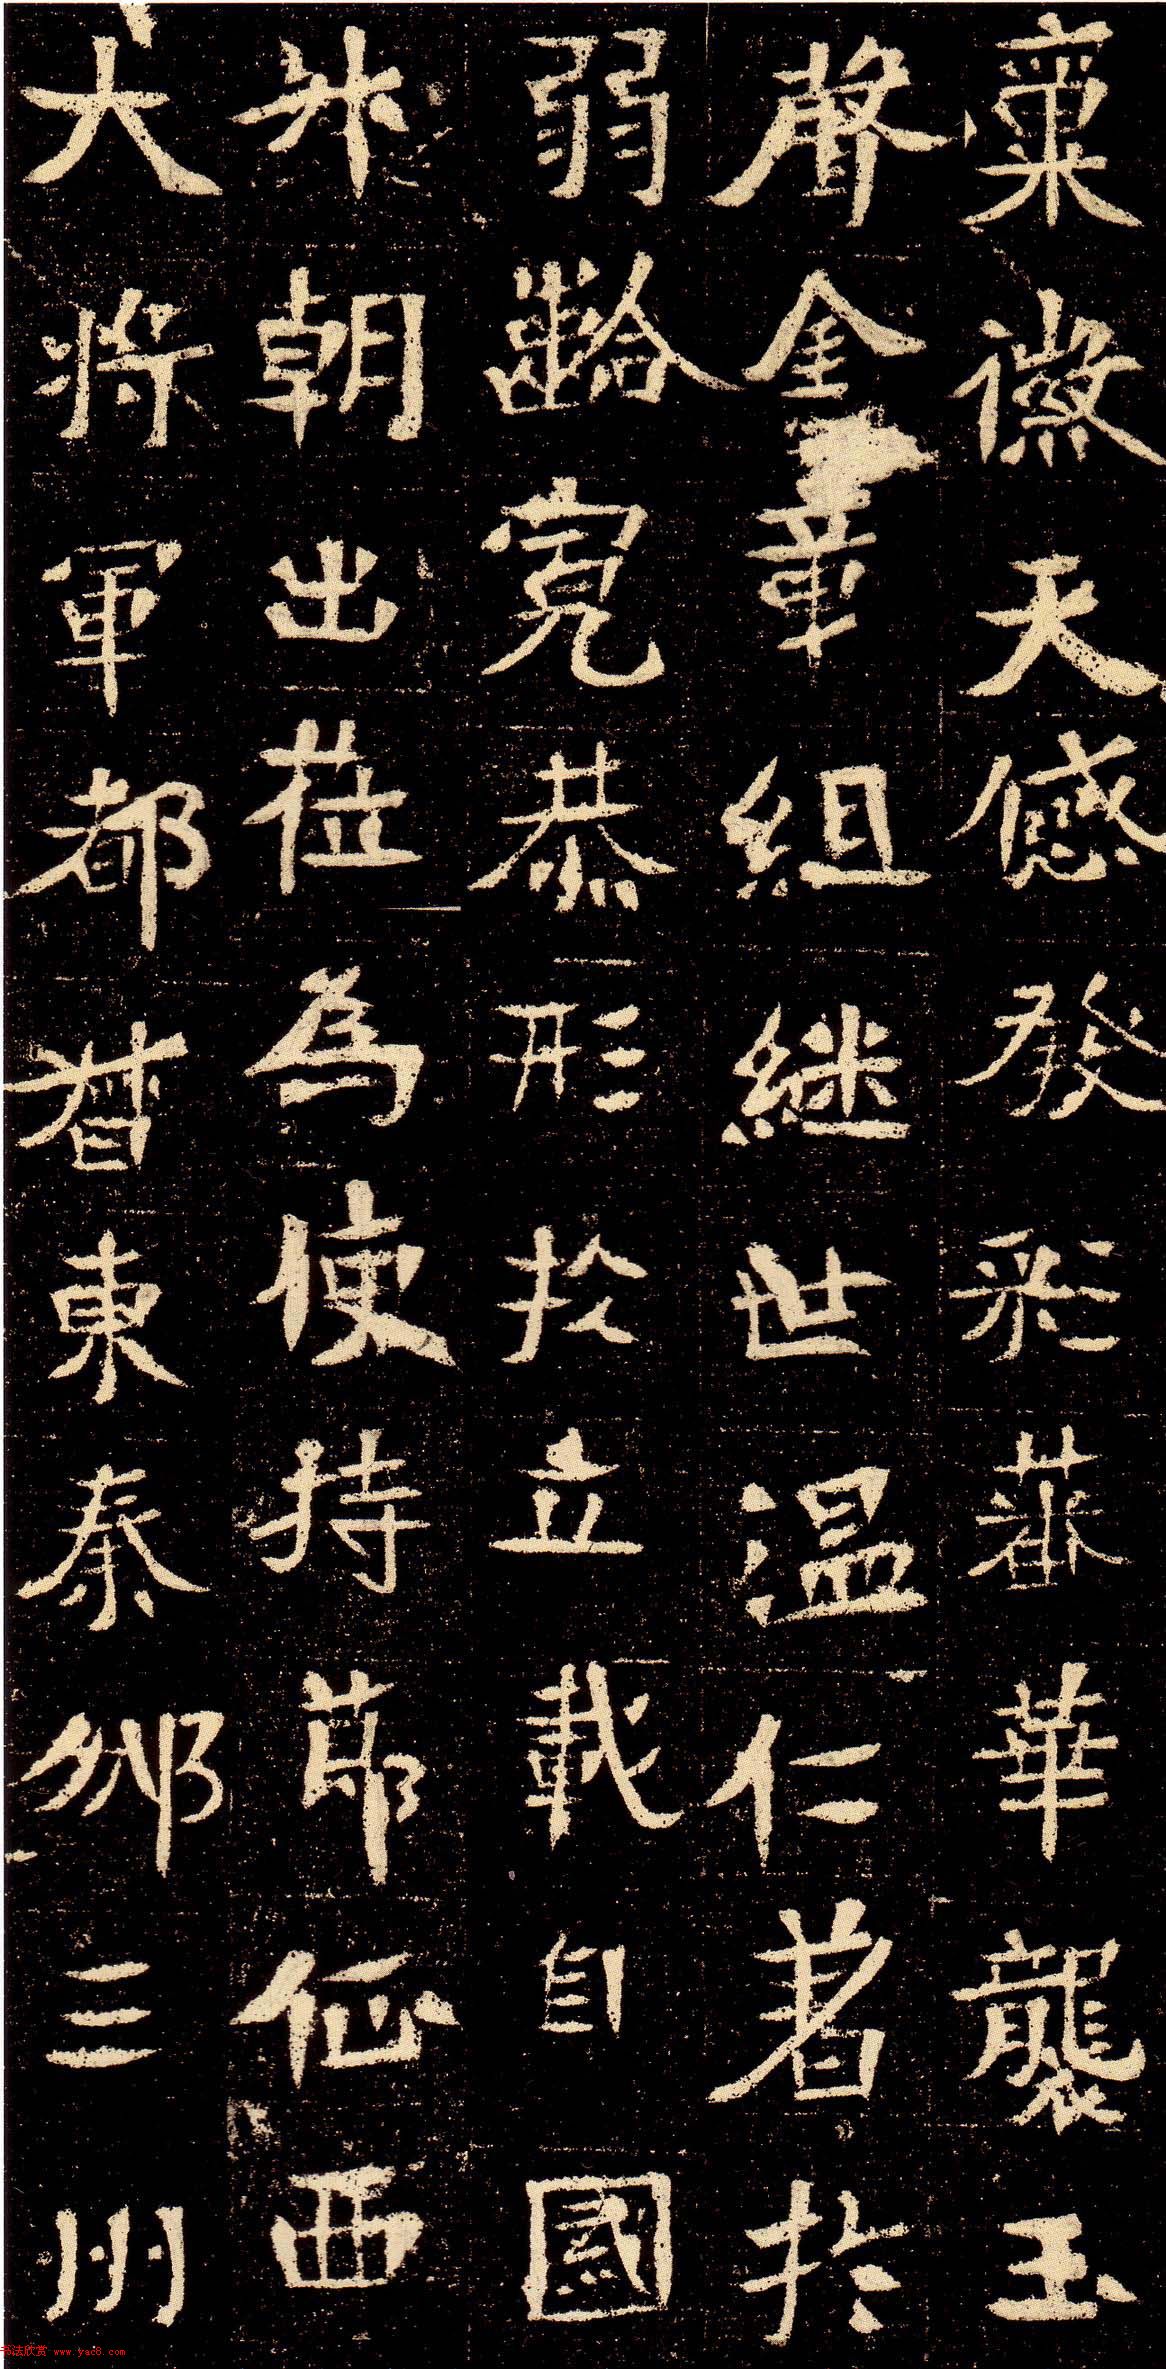 稟徽天感發彩蕃華襲玉
聲金章組継世温仁著於
弱齡寛恭形於立載自國
升朝出莅為使持節征西
大將軍都督東秦邠三州
书法欣赏 www.yac8.com